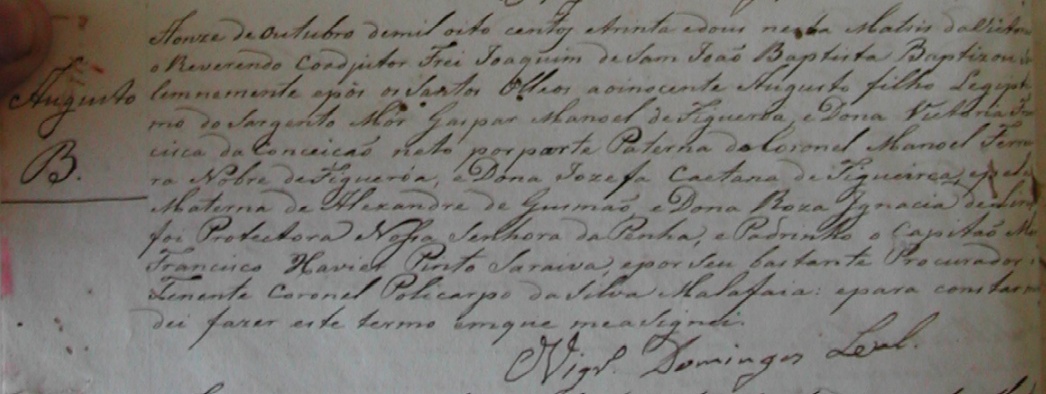 Aonze de outubro demil oito centos etrinta edous nesta Matris da Victor
o Reverendo Coadjutor Frei Joaquim de Sam João Baptista Baptizou
Augusto
lemnemente epôs os Santos Olleos aoinocente Augusto filho Legiti
mo do Sargento Mór Gaspar Manoel de Figueroa, e Dona Victoria
B.
cisca da Conceicaõ neto porparte Paterna do Coronel Manoel Ferre
ra Nobre de Figuerôa, e Dona Jozefa Caetana de Figueirea, epela
Materna de Alexandre de Gusmaõ, e Dona Roza Ignacia de
foi Protectora Nossa Senhora da Penha, e Padrinho o Capitaõ
Francisco Xavier Pinto Saraiva, epor seu bastante Procurador
Tenente Coronel Policarpo da Silva Malafaia: epara constar
dei fazer este termo emque measignei.
Vigr.º Domingos Leal.